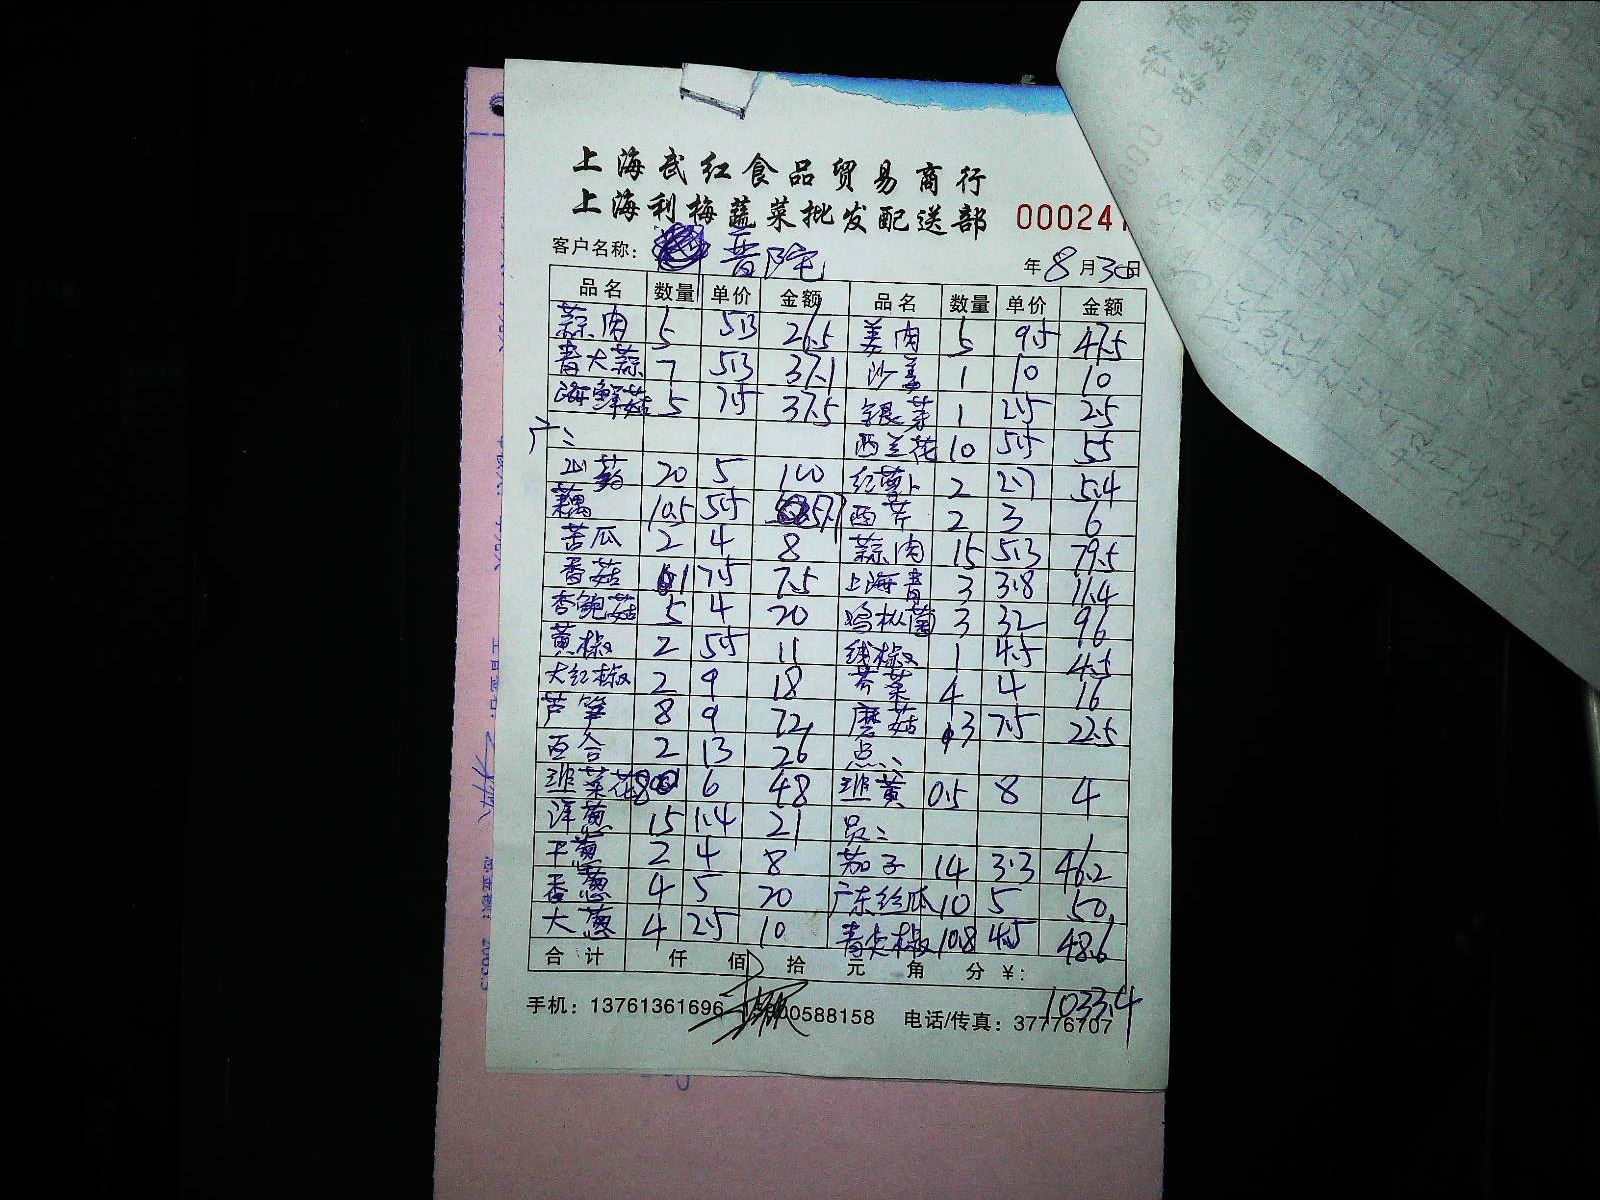 上海武红食品贸易商行
上海利梅蔬菜批发配送部 00024
客户名称： 普陀 年8月30日
品名 数量 单价 金额 品名 数量 单价 金额
蒜肉 5 5.3 26.5 姜肉 5 9.5 47.5
青大蒜 7 5.3 37.1 沙姜 1 10 10
海鲜菇 5 7.5 37.5 银菜 1 2.5 2.5
广: 西兰花 10 5.5 55
山药 20 5 100 红萝卜 2 2.7 5.4
藕 10.5 5.5 57.7 西芹 2 3 6
苦瓜 2 4 8 蒜肉 15 5.3 79.5
香菇 1 7.5 7.5 上海青 3 3.8 11.4
杏鲍菇 5 4 20 鸡枞菌 3 32 96
黄椒 2 5.5 11 线椒 1 4.5 4.5
大红椒 2 9 18 芥菜 4 4 16
芦笋 8 9 72 磨菇 3 7.5 22.5
百合 2 13 26 点:
韭菜花 8 6 48 韭黄 0.5 8 4
洋葱 15 1.4 21 员:
干葱 2 4 8 茄子 14 3.3 46.2
香葱 4 5 20 广东丝瓜 10 5 50
大葱 4 2.5 10 青尖椒 10.8 4.5 48.6
合计 仟 佰 拾 元 角 分 ¥: 1033.4
手机：13761361696 00588158 电话/传真：37776707